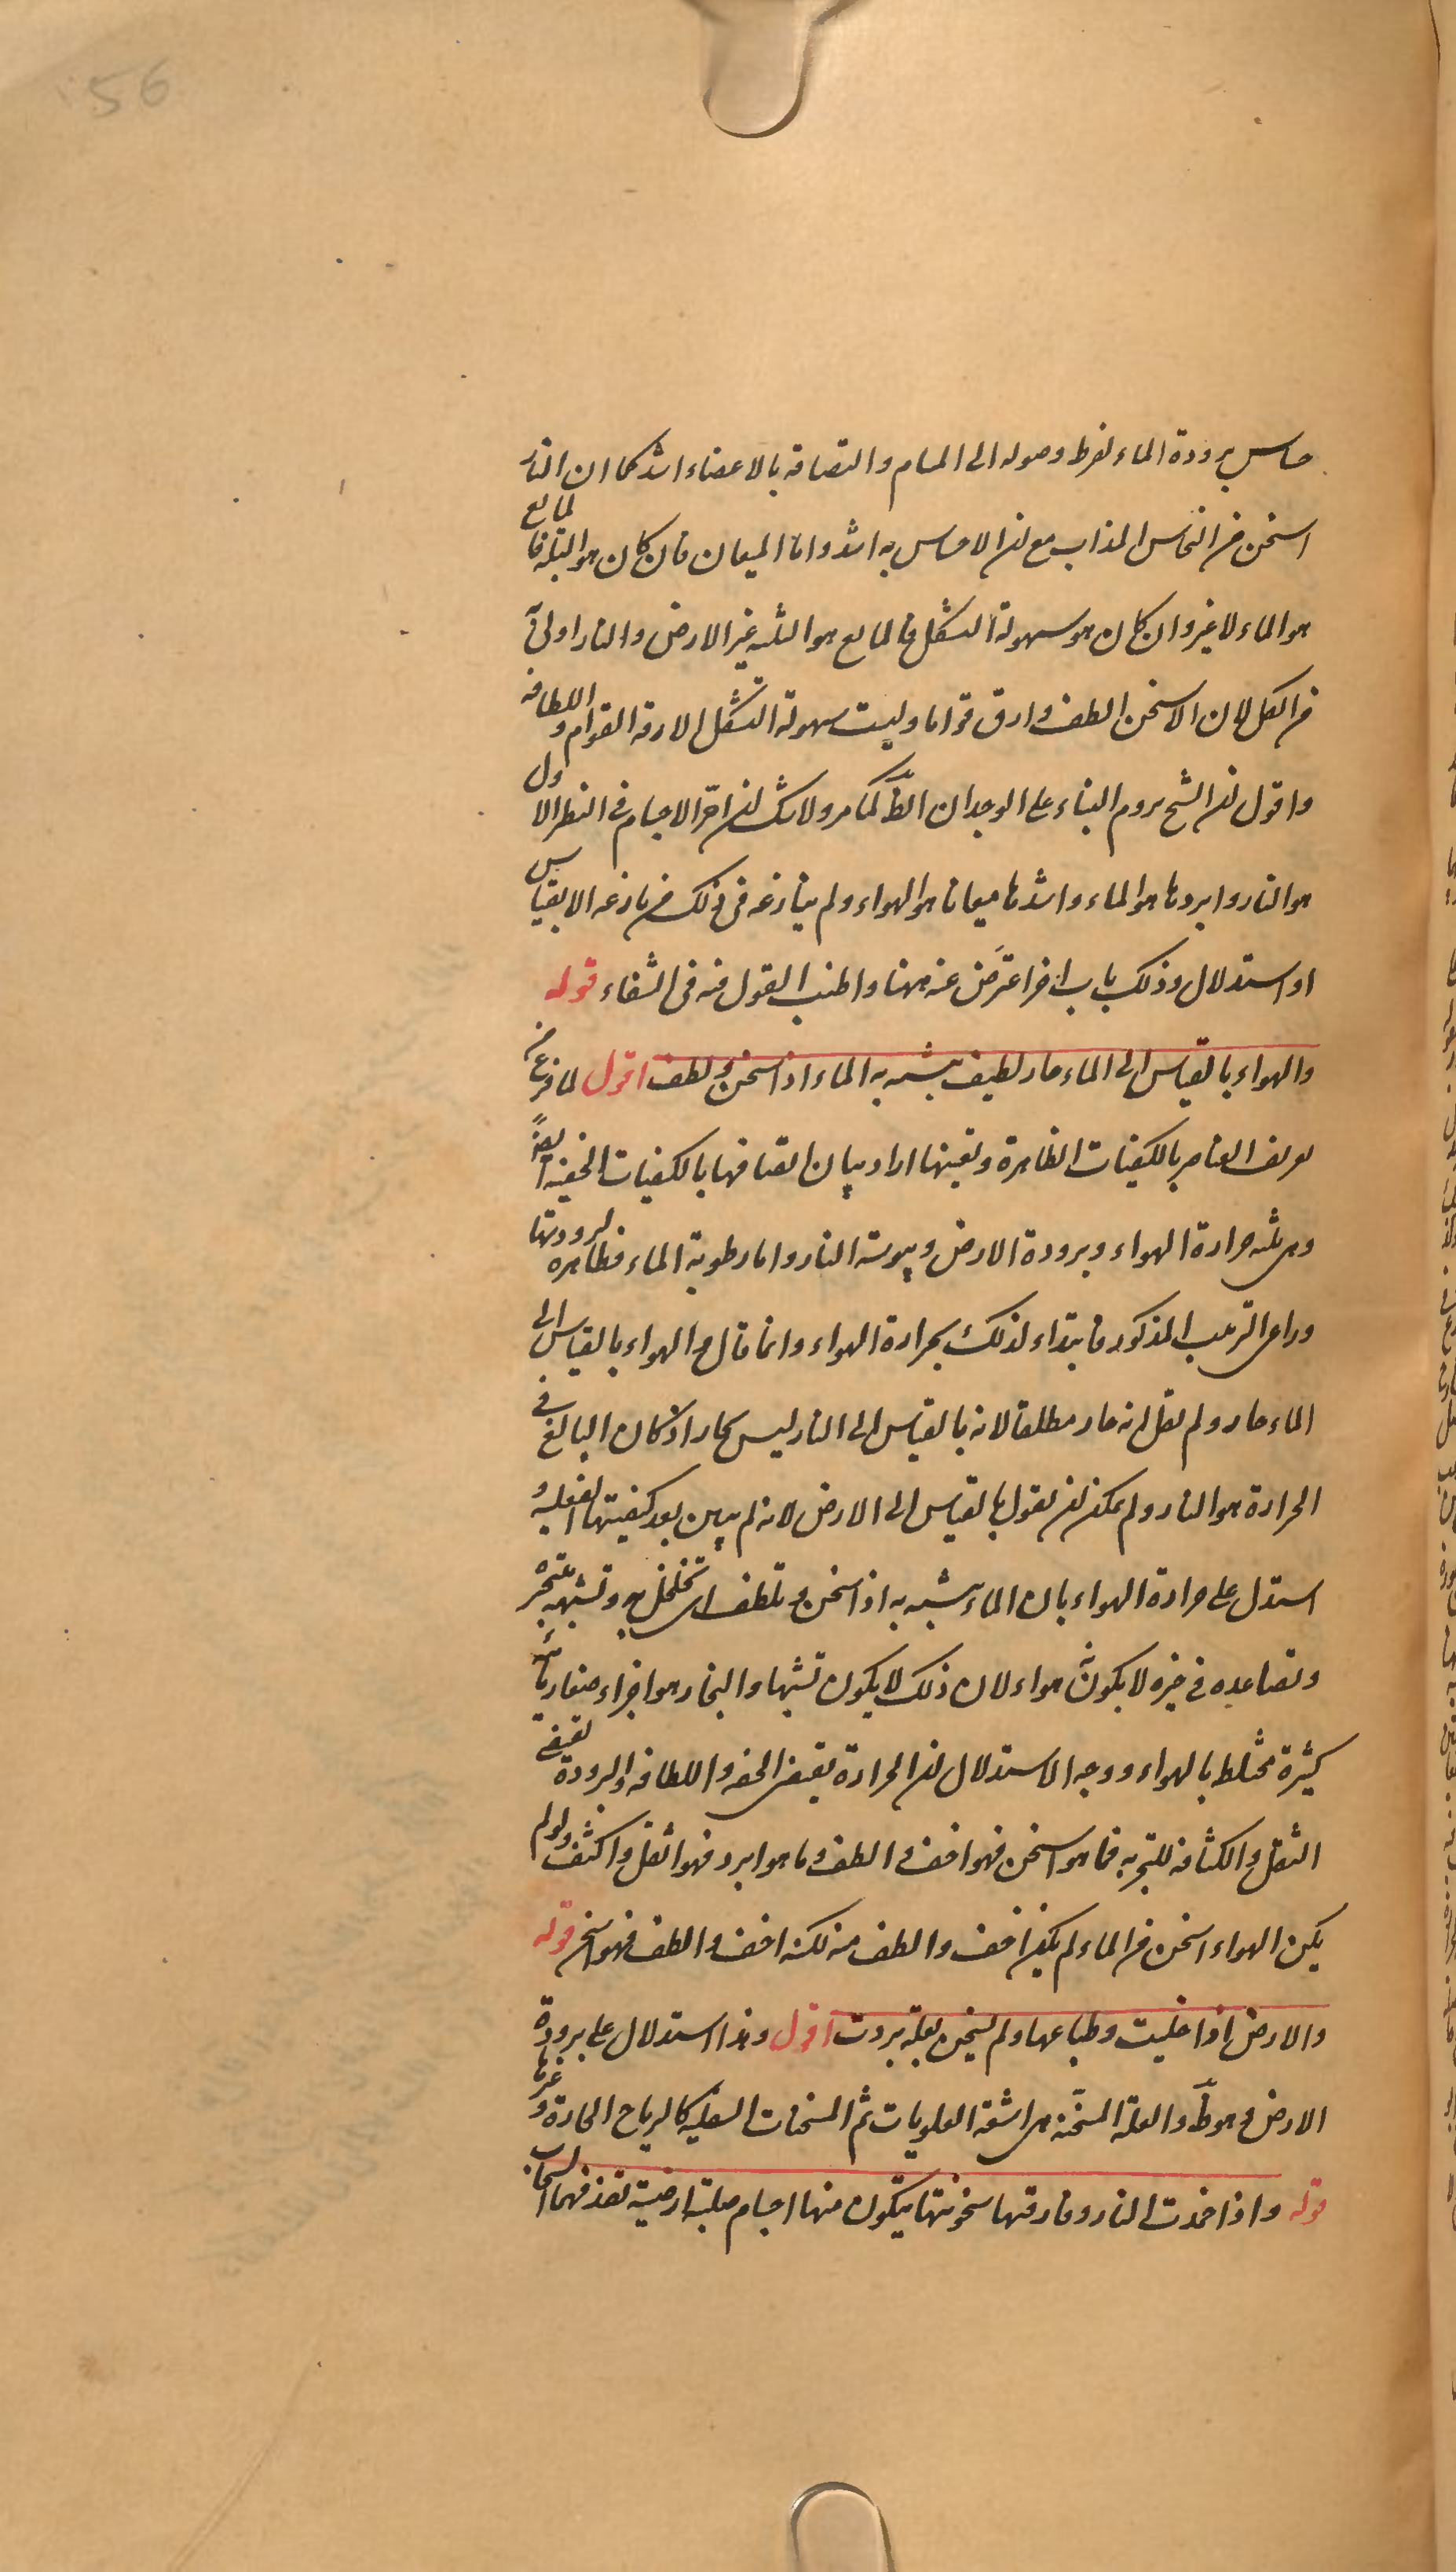 56
حساس ببرودة الماء لفرط وصوله الى المسام والتصاقه بالاعضاء اشد كما ان النار
اسخن من النحاس المذاب مع ان الاحساس به اشد واما الميعان فان كان هو البلة فالمايع
هو الماء لا غير وان كان هو سهولة التشكل فالمايع هو الثلثة غير الارض والنار اولى
من الكل لان الاسخن الطف وارق قواما وليست سهولة التشكل الا رقة القوام واللطافه
واقول ان الشيخ يروم البناء على الوجدان الظ كما مر ولا شك ان احر الاجسام فى النظر الاول
هو النار وابردها هو الماء واشدها ميعانا هو الهواء ولم ينازعه فى ذلك من نازعه الا بقياس
او استدلال وذلك باب اخر اعترض عنه ههنا واطنب القول فيه فى الشفاء قوله
والهواء بالقياس الى الماء حار لطيف يتشبه به الماء اذا سخن ولطف اقول لما فرغ من
تعريف العناصر بالكيفيات الظاهرة وتعينها اراد بيان اتصافها بالكيفيات الخفية ايضا
وهى ثلثه حرارة الهواء وبرودة الارض ويبوسة النار واما رطوبة الماء فظاهره لبرودتها
وراعى الترتيب المذكور فابتداء لذلك بحرارة الهواء وانما قال والهواء بالقياس الى
الماء حار ولم يقل انه حار مطلقا لانه بالقياس الى النار ليس بحار اذ كان البالغ فى
الحرارة هو النار ولم يمكن ان يقول بالقياس الى الارض لانه لم يبين بعد كيفيتها الفعلية و
استدل على حرارة الهواء بان الماء يتشبه به اذا سخن وتلطف اى تخلخل وتشبهه بتبخره
وتصاعده فى حيزه لا بكونه هواء لان ذلك لا يكون تشبها والبخار هو اجزاء صغار مائية
كثيرة مختلط بالهواء ووجه الاستدلال ان الحرارة يقتضى الخفه واللطافه والبرودة تقتضى
الثقل والكثافه للتجربه فما هو اسخن فهو اخف والطف وما هو ابرد فهو اثقل واكثف ولو لم
يكن الهواء اسخن من الماء لم يكن اخف والطف منه لكنه اخف والطف فهو اسخن قوله
والارض اذا خليت وطباعها ولم تسخن بعلة بردت اقول وهذا استدلال على برودة
الارض وهو ظ والعلة المسخنه هى اشعة العلويات ثم المسخنات السفليه كالرياح الحارة وغيرها
قوله واذا خمدت النار وفارقتها سخونتها يتكون منها اجسام صلبة ارضية تقذفها السحاب